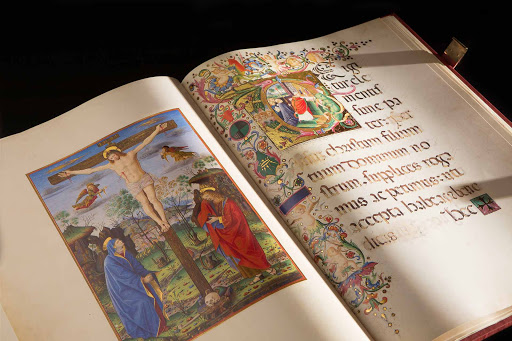 E Igi
tur cle
mentis
sime pa
ter. per
christum filium
tuum Dominum no
strum supplices roga
mus ac petimus. uti
accepta habeas
dicas hec